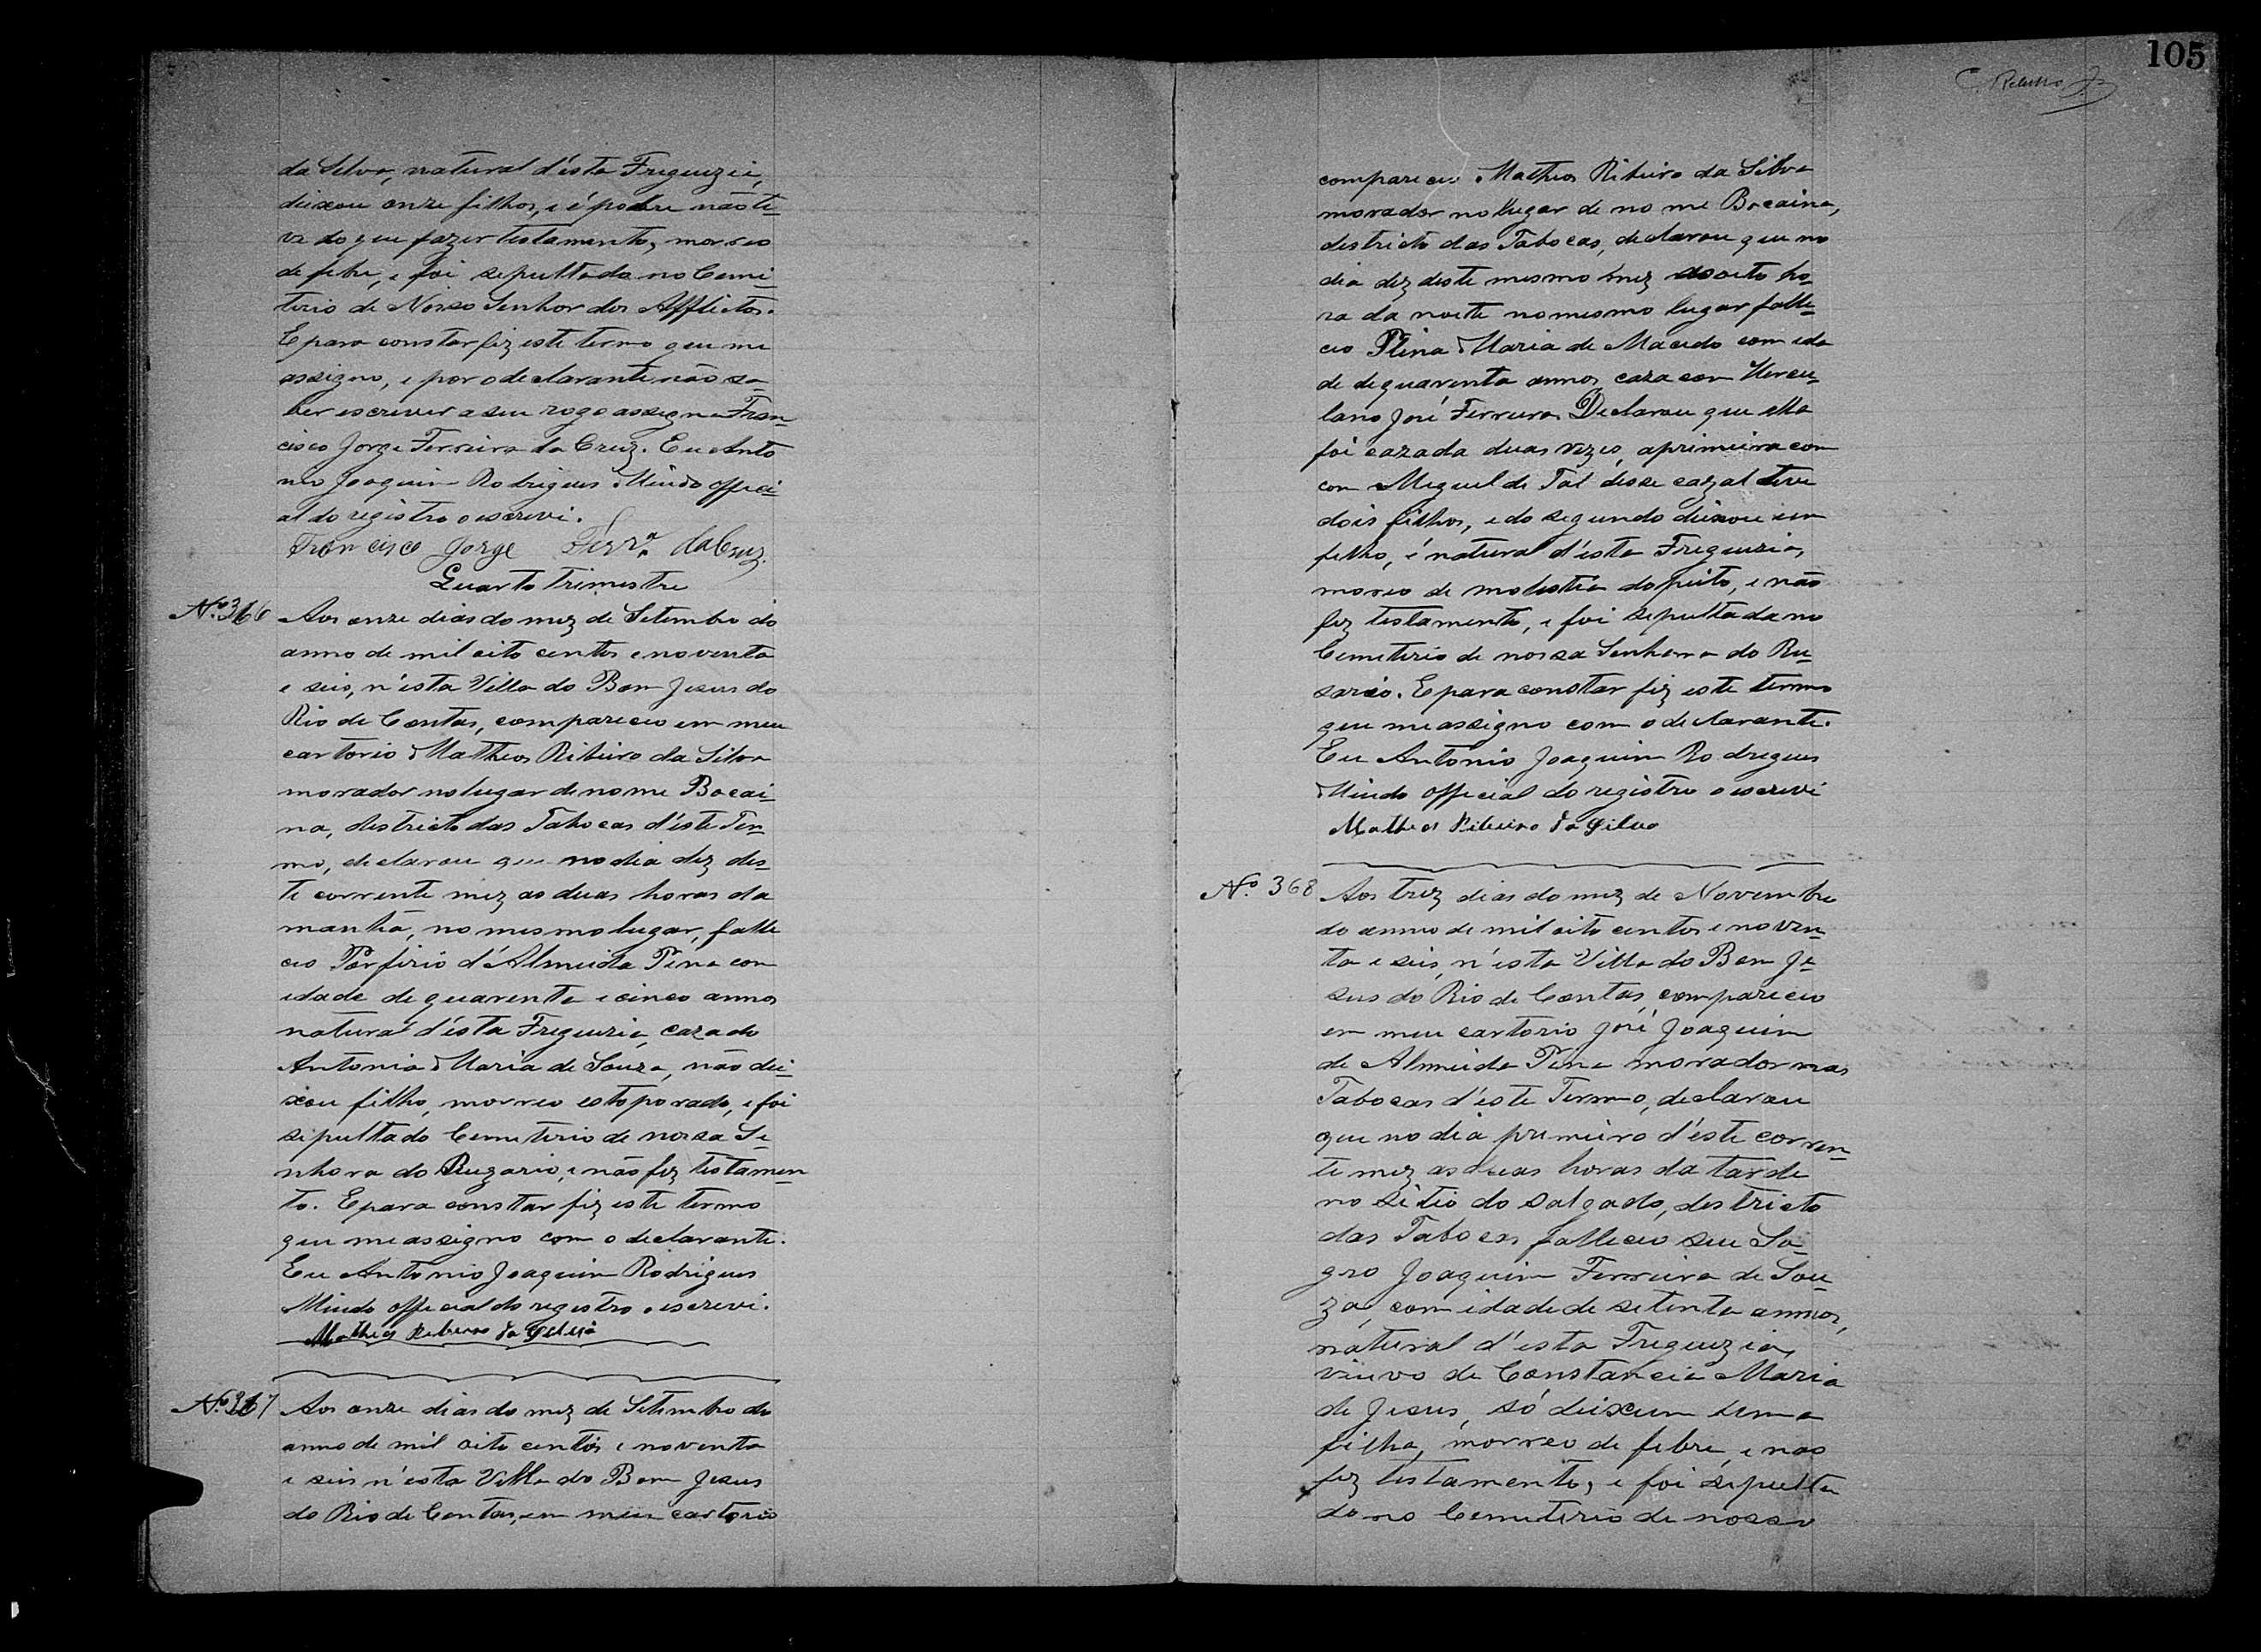 da Silva, natural d'ésta Freguezia,
deixou onze filhos, e é pobre não te-
ve do que fazer testamento, morreo
de febre, e foi sepultada no Cemi-
terio de Nosso Senhor dos Afflictos.
E para constar fiz este termo que me
assigno, e por o declarante não sa-
ber escrever a seu rogo assigna Fran-
cisco Jorge Ferreira da Cruz. Eu Anto
nio Joaquim Rodrigues Mindo offici-
al do registro o escrevi.
Francisco Jorge Ferrª. da Cruz.
Quarto Trimestre
Nº. 366
Aos onze dias do mez de Setembro do
anno de mil oito centos e noventa
e seis, n'ésta Villa do Bom Jesus do
Rio de Contas, compareceo em meu
cartorio Matheos Ribeiro da Silva
morador no lugar de nome Bocai-
na, destricto das Tabocas d'éste Ter-
mo, declarou que no dia dez des-
te corrente mez as duas horas da
manhã, no mesmo lugar, falle
ceo Porfirio d'Almeida Pina com
idade de quarenta e cinco annos
natural d'ésta Freguezia, cazado
Antonia Maria de Souza, não dei-
xou filho, morreo estoporado, e foi
sepultado Cemeterio de nossa Se-
nhora do Ruzario, e não fez testamen-
to. E para constar fiz este termo
que me assigno com o declarante.
Eu Antonio Joaquim Rodrigues
Mindo official do registro o escrevi.
Matheos Ribeiro da Silva
Nº. 367
Aos onze dias do mez de Setembro do
anno de mil oito centos e noventa
e seis n'ésta Villa do Bom Jesus
do Rio de Contas, em meu cartorio
105
compareceo Matheos Ribeiro da Silva
morador no lugar de no me Bocaina,
destricto das Tabocas, declarou que no
dia dez deste mesmo mez as oito ho-
ra da noite no mesmo lugar falle-
ceo Plina Maria de Macedo com ida
de de quarenta annos caza com Hercu-
lano José Ferreira. Declarou que ella
foi cazada duas vezes, a primeira com
com Miguel de Tal desse cazal teve
dois filhos, e do segundo deixou um
filho, é natural d'ésta Freguezia,
moreo de molestia do peito, e não
fez testamento, e foi sepultada no
Cemeterio de nossa Senhora do Ru-
sario. E para constar fiz este termo
que me assigno com o declarante.
Eu Antonio Joaquim Rodrigues
Mindo official do registro o escrevi
Matheos Ribeiro da Silva
Nº. 368
Aos trez dias do mez de Novembro
do anno de mil oito centos e noven-
ta e seis, n'ésta Villa do Bom Je-
sus do Rio de Contas, compareceo
em meu cartorio José Joaquim
de Almeida Pina morador nas
Tabocas d'éste Termo, declarou
que no dia primeiro d'éste corren-
te mez as duas horas da tarde
no sitio do Salgado, destricto
das Tabocas falleceo seu So-
gro Joaquim Ferreira de Sou-
za, com idade de setenta annos,
natural d'esta Freguezia,
viuvo de Constancia Maria
de Jesus, só deixeu uma
filha, morreo de febre, e nao
fez testamento, e foi sepulta
do no Cemeterio de nosso